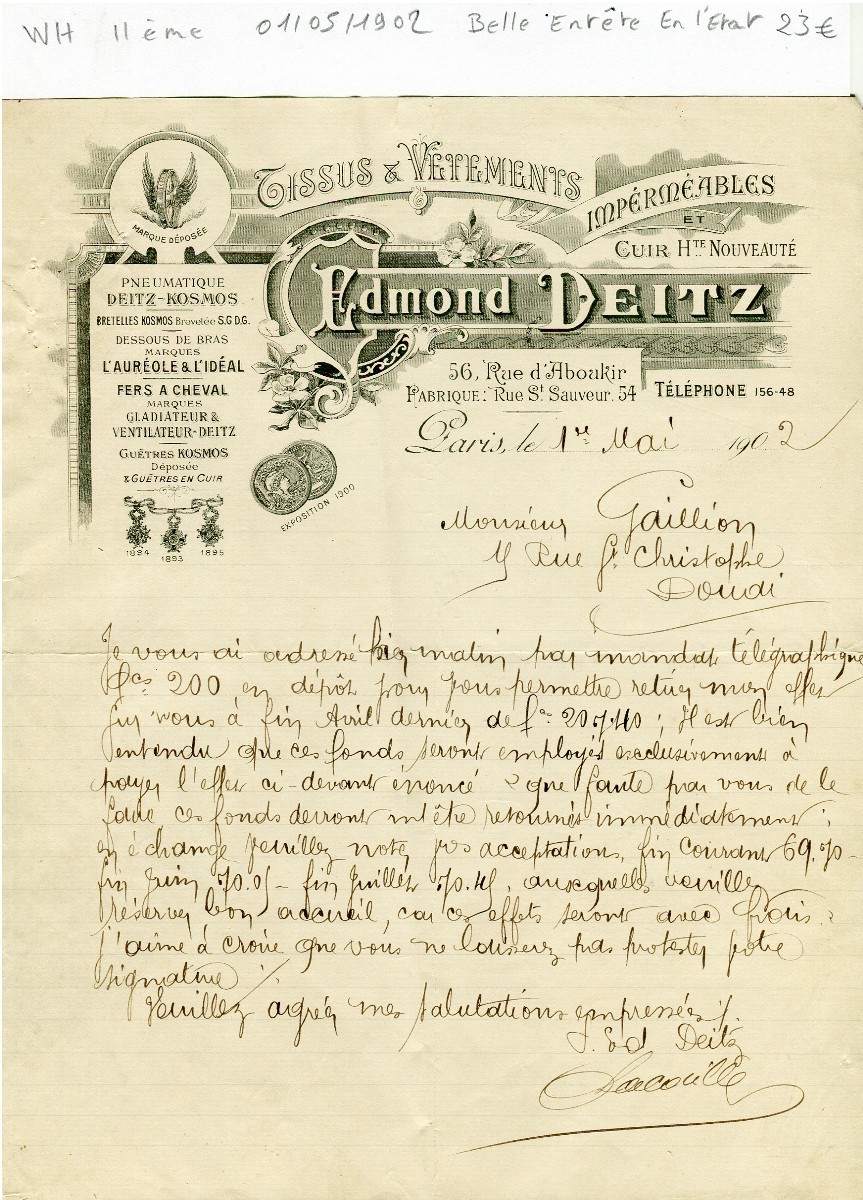 WH 11ème 01/05/1902 Belle Entête En l'Etat 23€
TISSUS & VÊTEMENTS
IMPÉRMÉABLES
ET
CUIR HTE NOUVEAUTÉ
MARQUE DÉPOSÉE
Edmond DEITZ
56, Rue d'Aboukir
FABRIQUE: Rue St Sauveur, 54
TÉLÉPHONE 156-48
PNEUMATIQUE
DEITZ-KOSMOS
BRETELLES KOSMOS Brevetée S.G.D.G.
DESSOUS DE BRAS
MARQUES
L'AURÉOLE & L'IDÉAL
FERS A CHEVAL
MARQUES
GLADIATEUR &
VENTILATEUR-DEITZ
GUÊTRES KOSMOS
Déposée
& GUÊTRES EN CUIR
1894 1893 1895
EXPOSITION 1900
Paris, le 1er Mai 1902
Monsieur Gaillion
Rue St Christophe
Douai
Je vous ai adressé hier matin par mandat télégraphique
Fcs 200 en dépôt pour vous permettre retirer mon effet
sur vous à fin Avril dernier de fcs 207.40 ; Il est bien
entendu que ces fonds seront employés exclusivement à
payer l'effet ci-devant énoncé & que faute par vous de le
faire ces fonds devront m'être retournés immédiatement ;
en échange veuillez noter vos acceptations, fin courant 69.70 -
fin Juin 70.05 - fin Juillet 70.45, auxquelles veuillez
réserver bon accueil, car ces effets seront avec frais &
j'aime à croire que vous ne laisserez pas protester votre
signature
Veuillez agréer mes salutations empressées
Ed Deitz